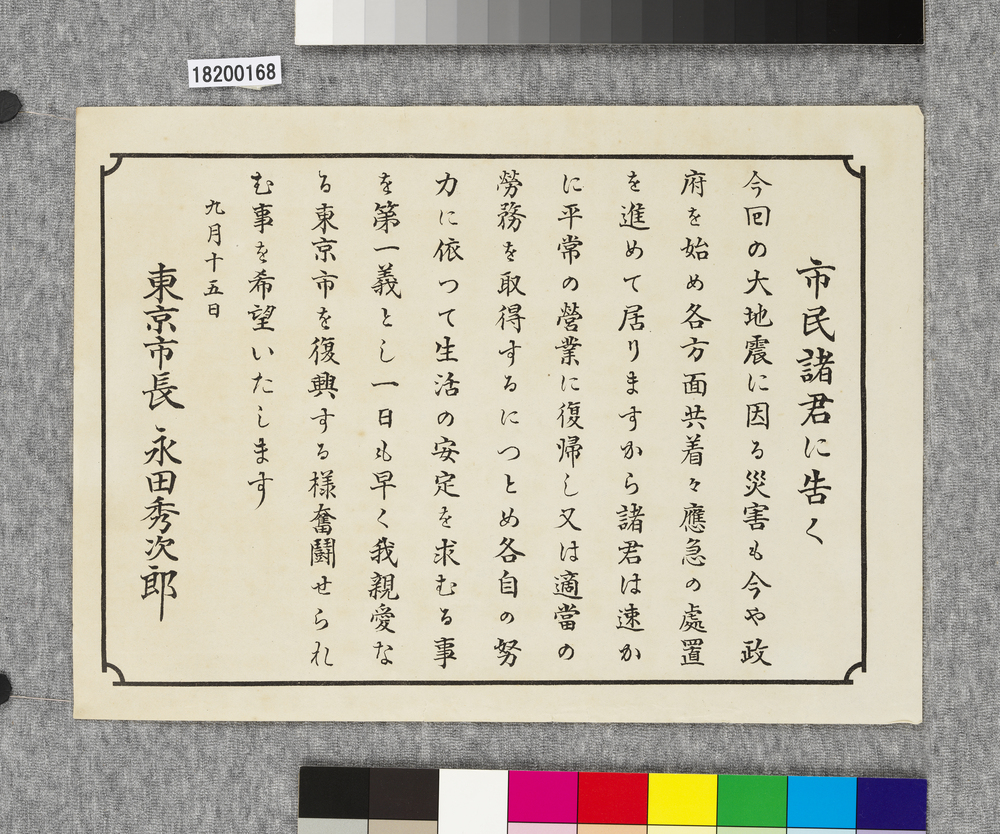 18200168
市民諸君に告く
今回の大地震に因る災害も今や政
府を始め各方面共着々應急の處置
を進めて居りますから諸君は速か
に平常の營業に復帰し又は適當の
勞務を取得するにつとめ各自の努
力に依つて生活の安定を求むる事
を第一義とし一日も早く我親愛な
る東京市を復興する様奮鬪せられ
む事を希望いたします
九月十五日
東京市長 永田秀次郎